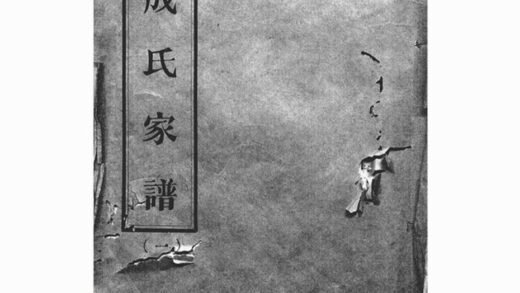 成氏家譜
(一)